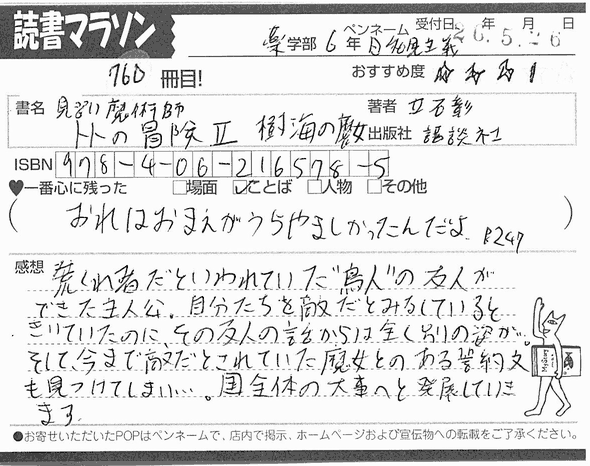 読書マラソン
薬学部 6年 ペンネーム 自先見主義 受付日 26.5.-6 年 月 日
760 冊目! おすすめ度 ☆☆☆
書名 見習い魔術師 トトの冒険 II 樹海の魔女
著者 立石彰
出版社 講談社
ISBN 978-4-06-216578-5
♥一番心に残った □場面 ☑ことば □人物 □その他
(おれはおまえがうらやましかったんだよ P.247)
感想 荒くれ者だといわれていた"鳥人"の友人が
できた主人公。自分たちを敵だとみなしていると
きいていたのに、その友人の話からは全く別の姿が。
そして、今まで敵だとされていた魔女とのある誓約文
も見つけてしまい…。国全体の大事へと発展していき
ます。
●お寄せいただいたPOPはペンネームで、店内で掲示、ホームページおよび宣伝物への転載をご了承ください。